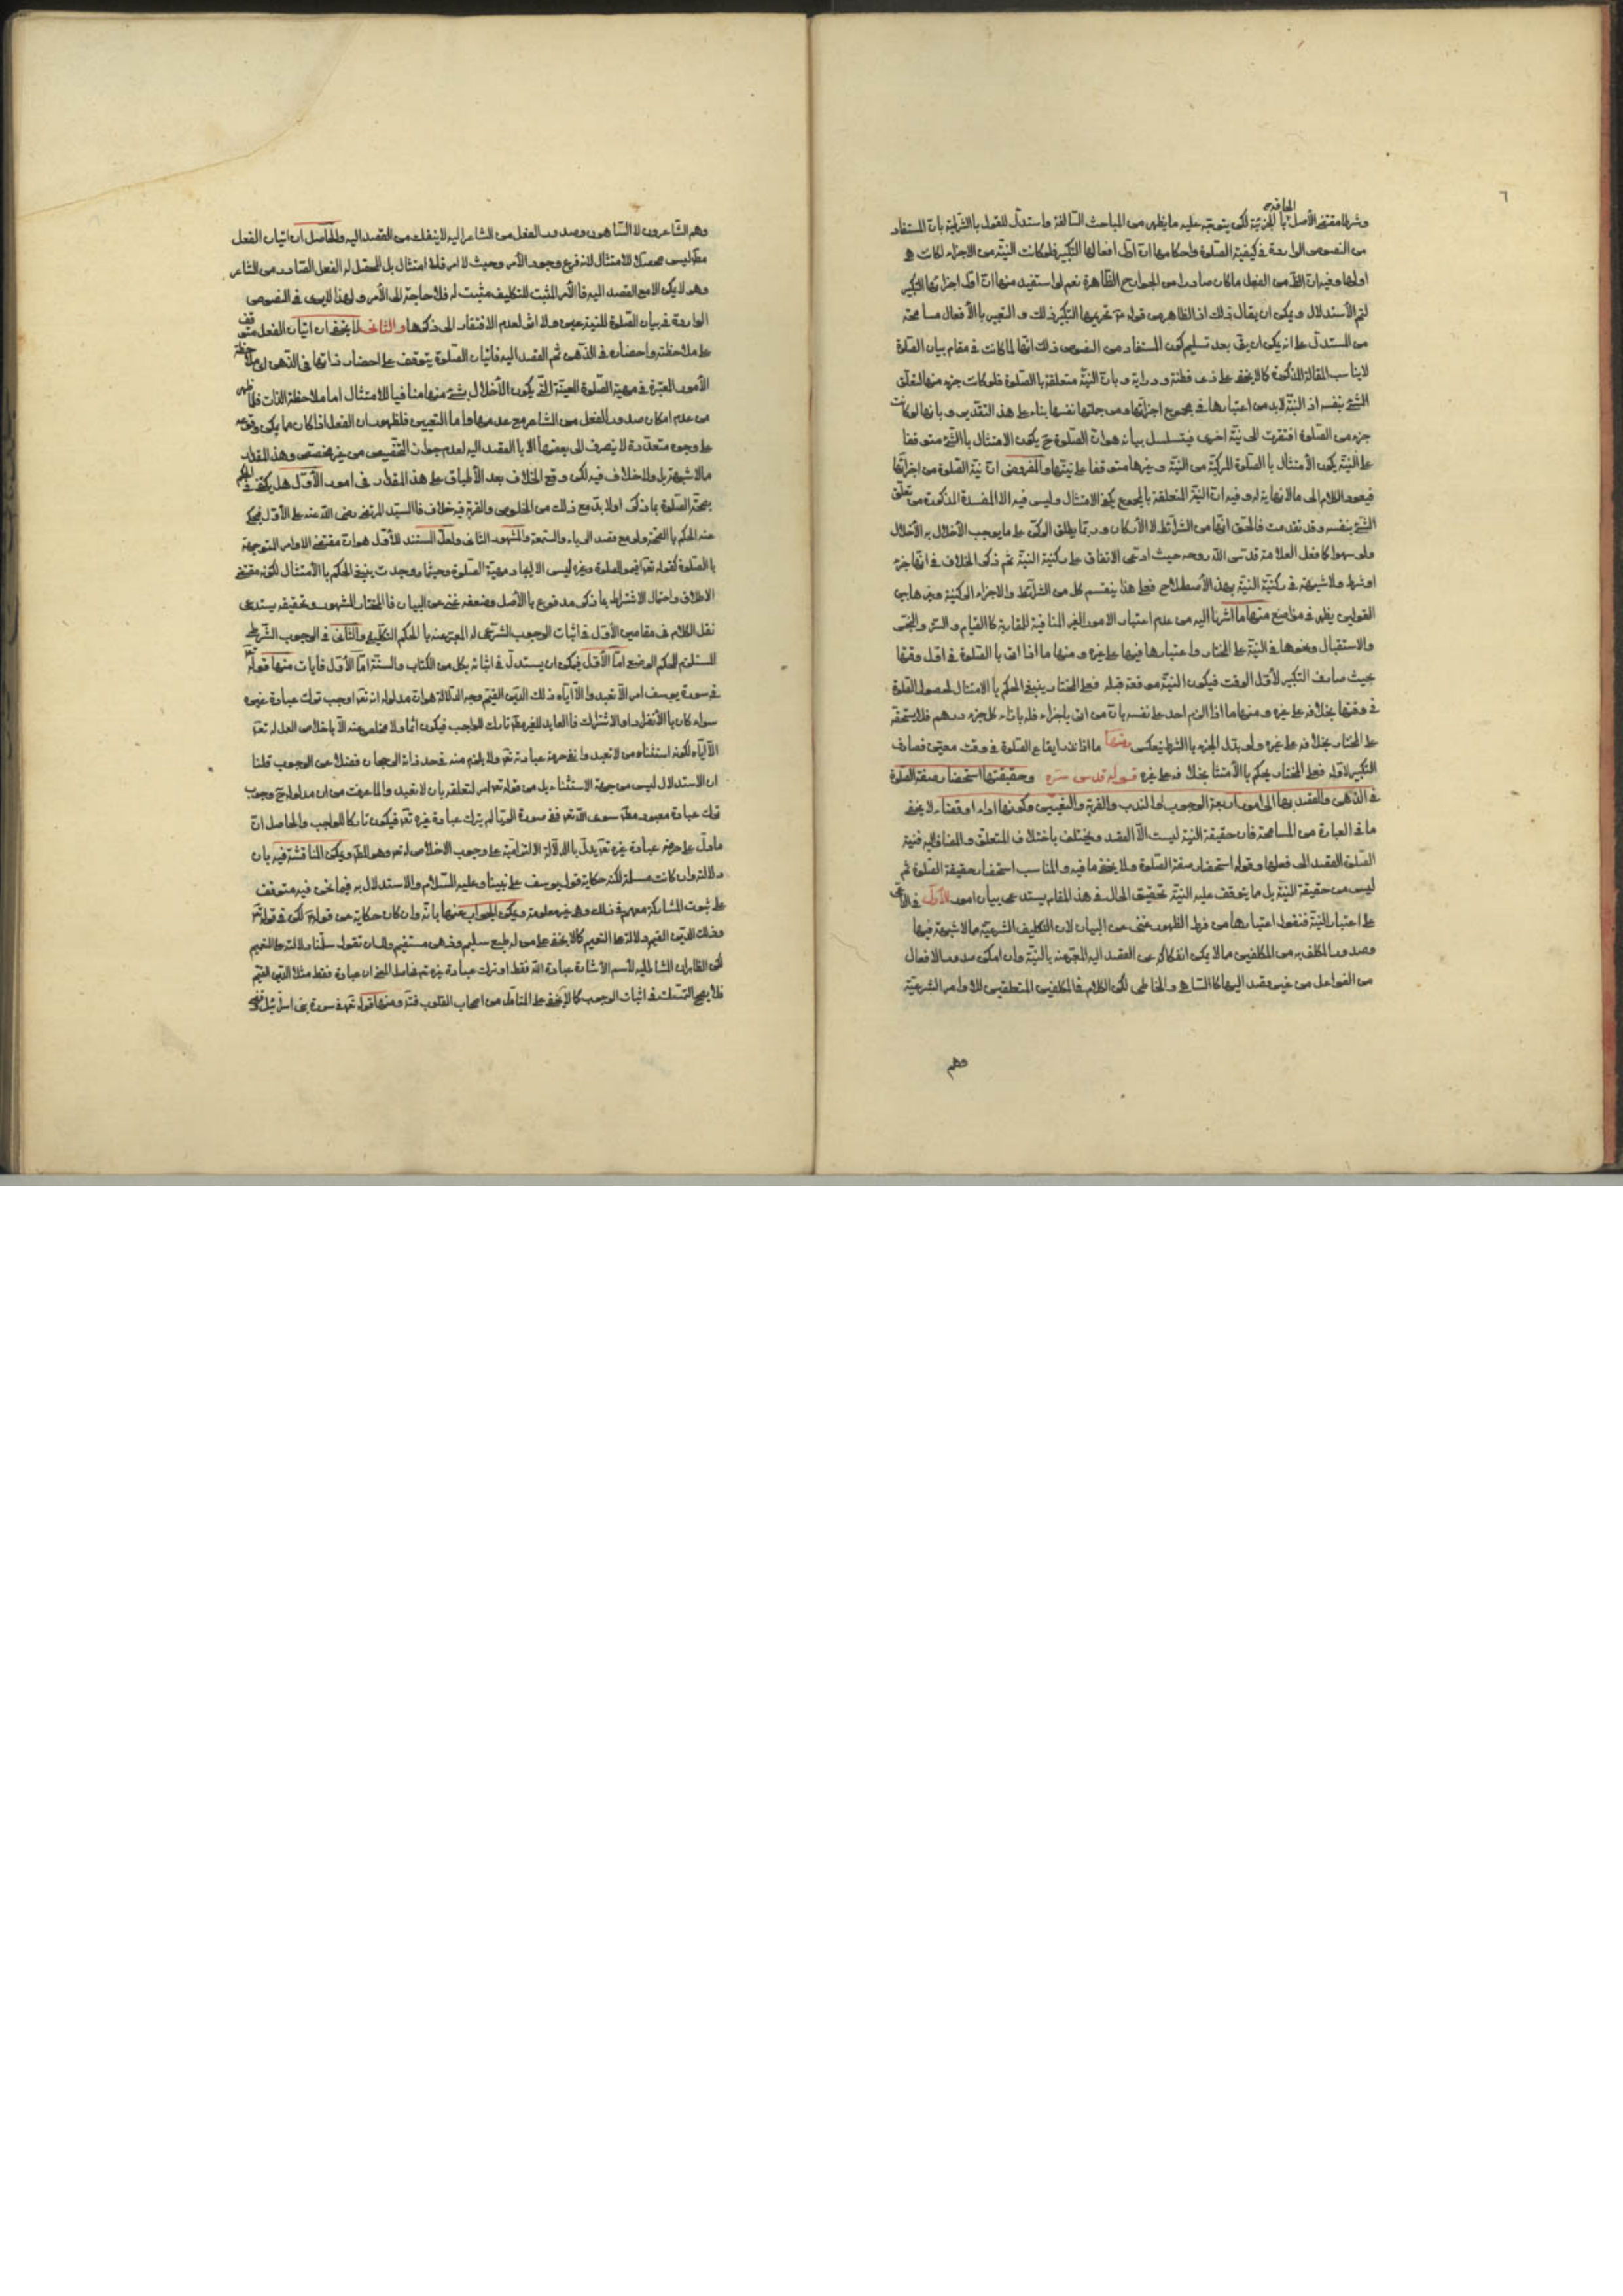 ٦
الحاقه
وشرط مقتضى الأصل بالجزئية لكن يتوجه عليه ما يظهر من المباحث السالفة واستدل للقول بالشرطية بان المستفاد
من النصوص الواردة في كيفية الصلوة واحكامها ان اول افعالها التكبير فلو كانت النية من الاجزاء لكانت هي
اولها وفيه ان الظ من الفعل ما كان صادرا من الجوارح الظاهرة نعم لو استفيد منها ان اول اجزائها التكبير
لتم الأستدلال ويمكن ان يقال ذلك اذ الظاهر من قوله ع تحريمها التكبير ذلك و التعبير بالأفعال مسامحة
من المستدل على انه يمكن ان يقال بعد تسليم كون المستفاد من النصوص ذلك انها لما كانت في مقام بيان الصلوة
لايناسب المقالة المذكورة كما لا يخفى على ذى فطنة ودراية وبان النية متعلقة بالصلوة فلو كانت جزء منها لتعلق
الشئ بنفسه اذ النية لا بد من اعتبارها في مجموع اجزائها ومن جملتها نفسها بناء على هذا التقدير وبانها لو كانت
جزء من الصلوة افتقرت الى نية اخرى فيتسلسل بيانه هو ان الصلوة ح يكون الامتثال بالشئ متوقفا
على النية يكون الأمتثال بالصلوة المركبة من النية وغيرها متوقفا على نيتها والمفروض ان نية الصلوة من اجزائها
فيعود الكلام الى مالا نهاية له وفيه ان النية المتعلقة بالمجموع يكفى الامتثال وليس فيه الا المفسدة المذكورة من تعلق
الشئ بنفسه وقد تقدمت فالحق انها من الشرائط لا الأركان وربما يطلق الركن على ما يوجب الأخلال به الأخلال
ولو سهوا كما فعل العلامة قدس الله روحه حيث ادعى الاتفاق على ركنية النية ثم ذكر الخلاف في انها جزء
او شرط ولا شبهة في ركنية النية بهذا الأصطلاح فعلى هذا ينقسم كل من الشرائط والاجزاء الى ركنية وغيرها بين
القولين يظهر في مواضع منها ما اشرنا اليه من عدم اعتبار الامور الغير المنافية للمقارنة كالقيام والستر والتحرى
والاستقبال ونحوها في النية على المختار واعتبارها فيها على غيره ومنها ما اذا اتى بالصلوة في اول وقتها
بحيث صادف التكبير لأول الوقت فيكون النية موقعة قبله فعلى المختار ينبغى الحكم بالامتثال لحصول الصلوة
في وقتها بخلافه على غيره ومنها ما اذا الزم احد على نفسه بان من اتى باجزاء فله باناء كل جزء درهم فلا يستحقه
على المختار بخلافه على غيره ولو بدل الجزء بالشرط ينعكس ومنها ما اذا نذر ايقاع الصلوة في وقت معين فصادف
التكبير لاوله فعلى المختار يحكم بالأمتثال بخلافه على غيره قوله قدس سره وحقيقتها استحضار صفة الصلوة
في الذهن والقصد بها الى امور اربعة الوجوب او الندب والقربة والتعيين وكونها اداء او قضاء لا يخفى
ما في العبارة من المسامحة فان حقيقة النية ليست الا القصد ويختلف باختلاف المتعلق والمضاف اليه فنية
الصلوة القصد الى فعلها وقوله استحضار صفة الصلوة ولا يخفى ما فيه والمناسب استحضار حقيقة الصلوة ثم
ليس من حقيقة النية بل ما يتوقف عليه النية تحقيق الحال في هذا المقام يستدعى بيان امور الأول في الداعى
على اعتبار النية فنقول اعتبارها من فرط الظهور غنى عن البيان لان التكليف الشرعية مالا شبهة فيها
وصدور المكلف به من المكلفين مالا يمكن انفكاكه عن القصد اليه المعبر عنه بالنية وان امكن صدور الافعال
من الفواعل من غير قصد اليها كالساهى والخاطى لكن الكلام في المكلفين المتعلقين للاوامر الشرعية
وهم
وهم الشاعرون لا الساهون وصدور الفعل من الشاعر اليه لا ينفك من القصد اليه والحاصل ان اتيان الفعل
مط ليس محصلا للامتثال لانه فرع وجود الأمر وحيث لا امر فلا امتثال بل المحصل له الفعل الصادر من الشاعر
وهو لا يمكن الا مع القصد اليه فالأمر المثبت للتكليف مثبت له فلا حاجة الى الأمر ولهذا لا يرى في النصوص
الواردة في بيان الصلوة للنية عين ولا اثر لعدم الافتقار الى ذكرها والثانى لا يخفى ان اتيان الفعل متوقف
على ملاحظته واحضاره في الذهن ثم القصد اليه فاتيان الصلوة يتوقف على احضار ذاتها في الذهن اى ملاحظة
الأمور المعتبرة في مهية الصلوة المعينة التى يكون الأخلال بشئ منها منافيا للامتثال اما ملاحظة الذات فلما ظهر
من عدم امكان صدور الفعل من الشاعر مع عدمها واما التعيين فلظهور ان الفعل اذا كان مما يمكن وقوعه
على وجوه متعددة لا ينصرف الى بعضها الا بالقصد اليه لعدم جواز التخصيص من غير مخصص وهذا المقدار
مالا شبهة بل ولا خلاف فيه لكن وقع الخلاف بعد الأطباق على هذا المقدار في امور الأول هل يكفى في الحكم
بصحة الصلوة ما ذكر اولا بد مع ذلك من الخلوص والقربة فيه خلاف فالسيد المرتضى رضى الله عنه على الأول فيحكم
عنه الحكم بالصحة ولو مع قصد الرياء والسمعة والمشهور الثانى ولعل المستند للأول هو ان مقتضى الاوامر المتوجهة
بالصلوة كقوله تعالى اقيموا الصلوة وغيره ليس الا ايجاد مهية الصلوة وحيثما وجدت ينبغى الحكم بالأمتثال لكونه مقتضى
الاطلاق واحتمال الاشتراط بما ذكر مدفوع بالأصل وضعفه غنى عن البيان فالمختار المشهور وتحقيقه يستدعى
نقل الكلام في مقامين الأول في اثبات الوجوب الشرعى له المعبر عنه بالحكم التكليفى والثانى في الوجوب الشرطى
المستلزم للحكم الوضعى اما الأول فيمكن ان يستدل في اثباته بكل من الكتاب والسنة اما الأول فآيات منها قوله تعالى
في سورة يوسف امر الا تعبدوا الا اياه ذلك الدين القيم وجه الدلالة هو ان مدلوله انه تعالى اوجب ترك عبادة غيره
سواء كان بالأنفراد او الاشتراك فالعابد للغير مط تارك للواجب فيكون اثما ولا مخلص عنه الا باخلاص العمل له تعالى
الا اياه لكونه استثناء من لا تعبدوا نفى حرمة عبادته تعالى ولا يلزم منه في حد ذاته الرجحان فضلا عن الوجوب قلنا
ان الاستدلال ليس من جهة الاستثناء بل من قوله تعالى امر لتعلقه بان لا تعبدوا لما عرفت من ان مدلوله ح وجوب
ترك عبادة معبود مط سوى الله تعالى ففى صورة الريا لم يترك عبادة غيره تعالى فيكون تاركا للواجب والحاصل ان
ما دل على حرمة عبادة غيره تعالى يدل بالدلالة الالتزامية على وجوب الاخلاص له تعالى وهو المط ويمكن المناقشة فيه بان
دلالته وان كانت مسلمة لكنه حكاية قول يوسف على نبينا وعليه السلام والاستدلال به فيما نحن فيه متوقف
على ثبوت المشاركة معهم في ذلك وهى غير معلومة ويمكن الجواب عنها بانه وان كان حكاية عن قوله ع لكن في قوله تعالى
وذلك الدين القيم دلالة على التعميم كما لا يخفى على من له طبع سليم وذهن مستقيم ولك ان تقول سلمنا دلالته على التعميم
لكن الظاهر ان المشار اليه لأسم الأشارة عبادة الله فقط او ترك عبادة غيره
فلا يصح التمسك في اثبات الوجوب كما لا يخفى على المتأمل من اصحاب القلوب فتدبر ومنها قوله تعالى في سورة بنى اسرائيل وقضى